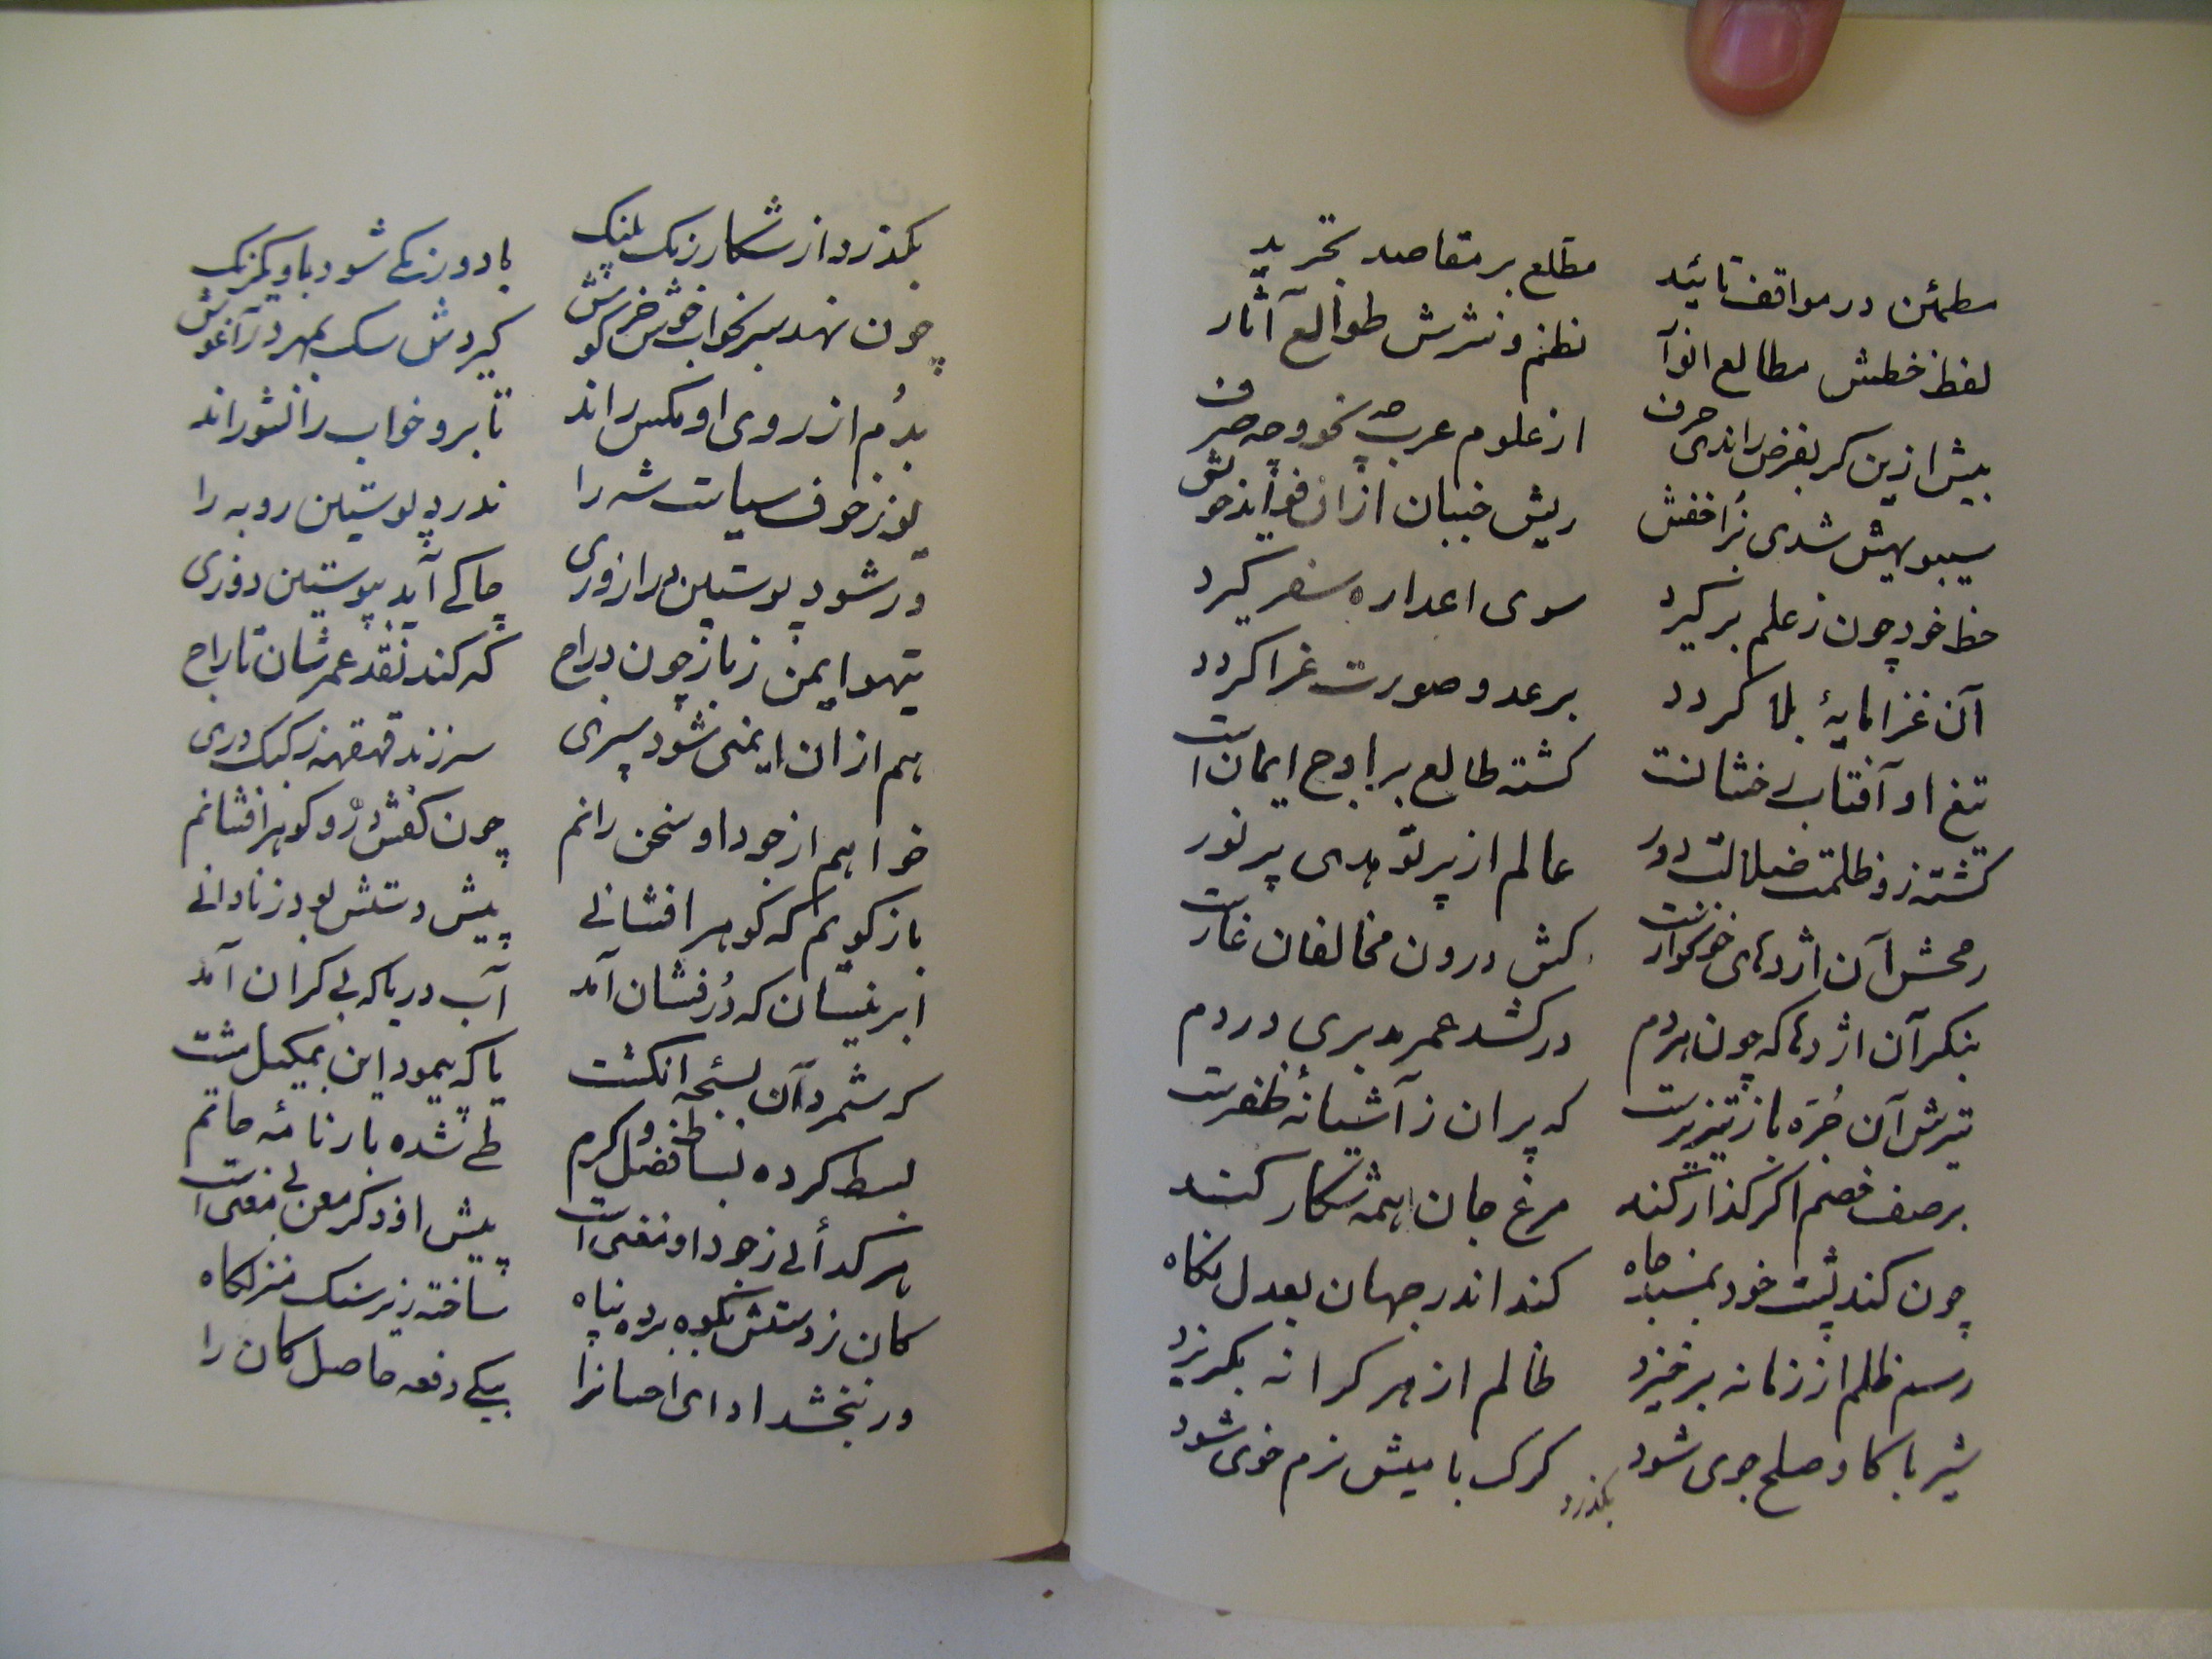 مطمئن در مواقف تائید مطلع بر مقاصد تجرید
لفظ خطش مطالع انوآ نظم و نثرش طوالع آثار
بیش ازین کر بفرض راندی حرف از علوم عرب چه نحو و چه صرف
سیبویهش شدی ز اخفش ریش جنبان ازان فواید خوش
حظ خود چون ز علم برگیرد سوی اعدا ره سفر گیرد
آن غزا مایهٔ بلا کردد بر عدو صورت غزا کردد
تیغ او آفتاب رخشانست کشته طالع بر اوج ایمان است
کشته زو ظلمت ضلالت دور عالم از پرتو هدی پر نور
رمحش آن اژدهای خونخوارست کش درون مخالفان غارست
بنکر آن اژدها که چون هر دم درکشد عمر مدبری در دم
تیرش آن جُرّه باز تیزپرست که پران ز آشیانهٔ ظفرست
بر صف خصم اکر کذار کند مرغ جان همه شکار کند
چون کند پشت خود بمسند جاه کند اندر جهان بعدل نکاه
رسم ظلم از زمانه برخیزد ظالم از هر کرانه بکریزد
شیر با کاو صلح جوی شود کرک با میش نرم خوی شود
بکذرد
بکذرد از شکار رنک پلنک با دو رنکی شود باو یکرنک
چون نهد سر بخواب خوش خرکوش کیردش سک بمهر در آغوش
بدُم از روی او مکس راند تا برو خواب را نشوراند
یوز ز خوف سیاست شه را ندرد پوستین روبه را
ور شود پوستین درا زوری چاکی آید بپوستین دوزی
تیهو ایمن ز باز چون دراج که کند نقد عمرشان تاراج
هم ازان ایمنی شود سپری سر زند قهقهه ز کبک دری
خواهم از جود او سخن رانم چون کفش دُرّ و کوهر افشانم
باز کویم که کوهر افشانی پیش دستش بود ز نادانی
ابر نیسان که دُر فشان آمد آب دریا که بی کران آمد
که شمرد آن بسبحهٔ انکشت یا که پیمود این بمکیل مشت
بسط کرده بساط فضل و کرم طی شده بارنامهٔ حاتم
هر کدائی ز جود او منعمی است پیش او ذکر معن بی معنی است
کان ز دستش بکوه برده پناه ساخته زیر سنک منزلکاه
ور نبخشد ادای احسانرا بیکی دفعه حاصل کان را